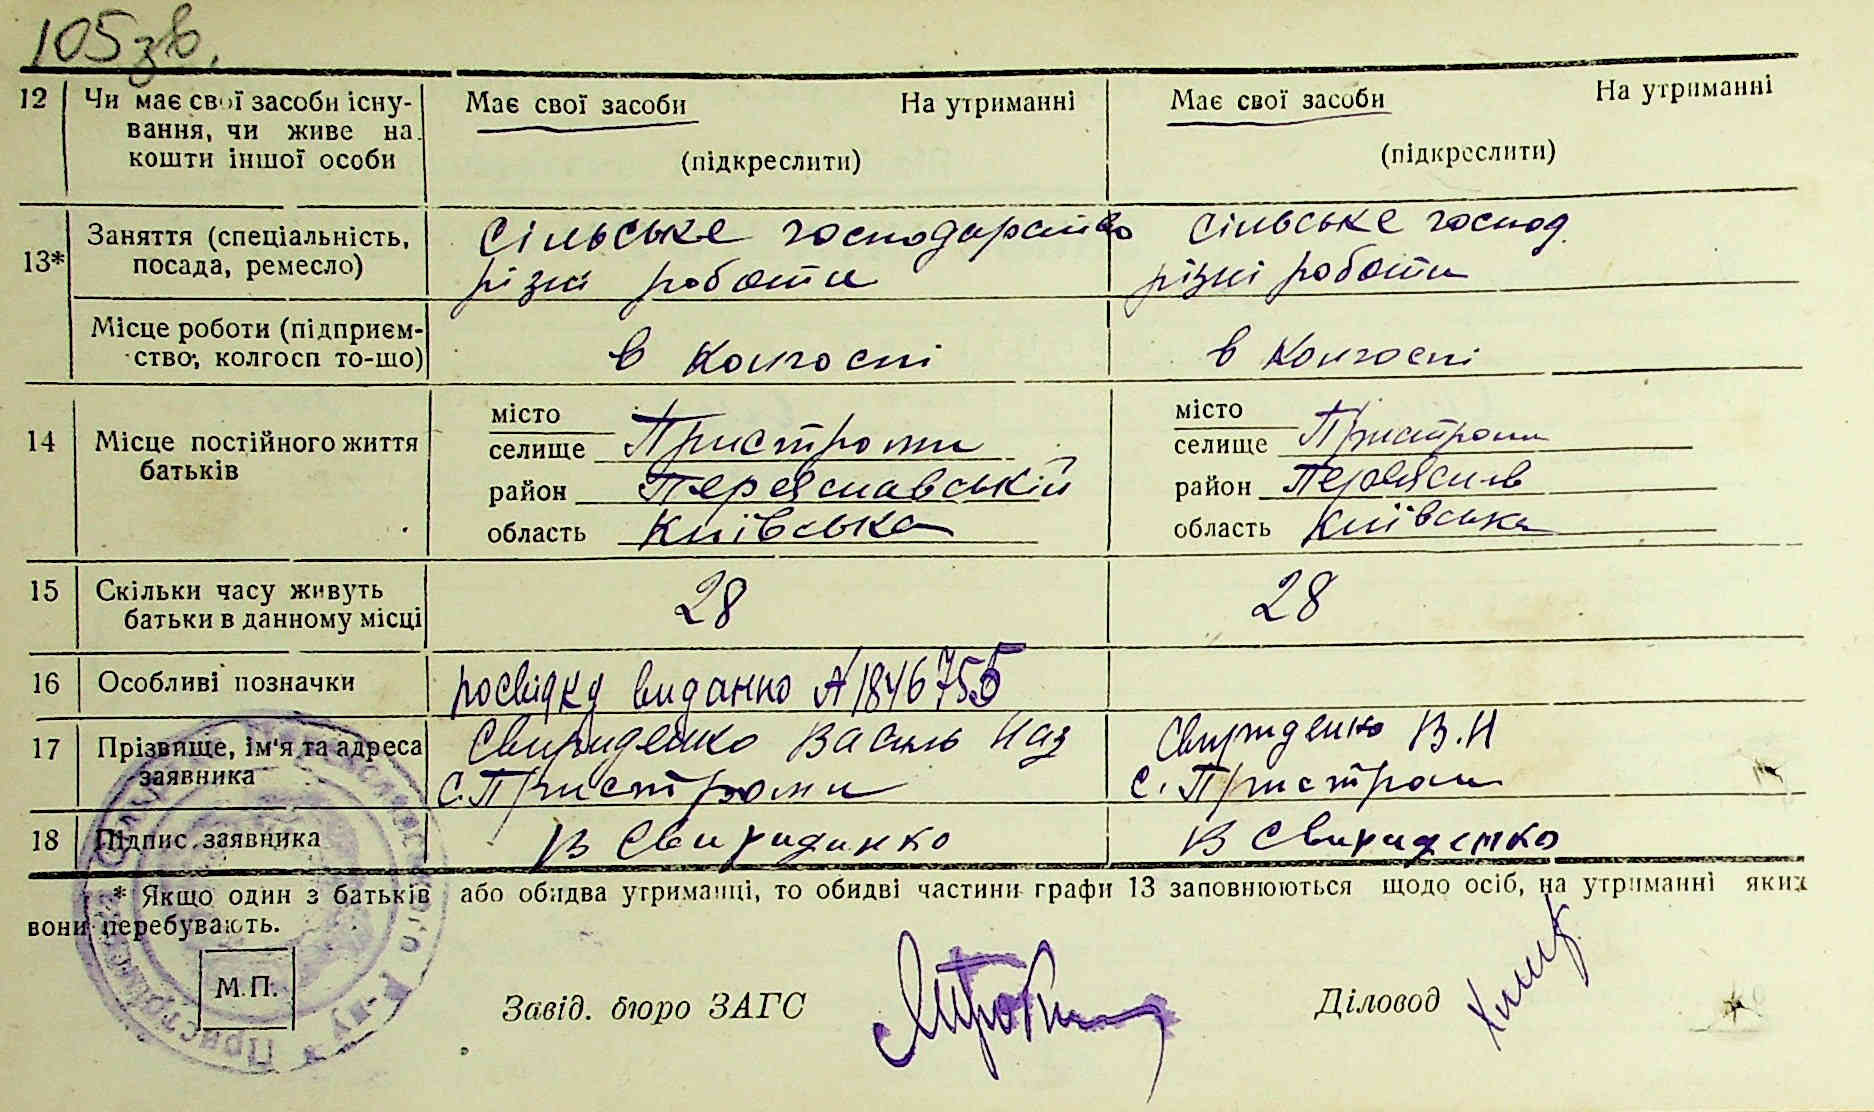 105 зв.
12 Чи має свої засоби існу- Має свої засоби На утриманні Має свої засоби На утриманні
вання, чи живе на
кошти іншої особи (підкреслити) (підкреслити)
13* Заняття (спеціальність, Сільське господарство Сільське господ.
посада, ремесло) різні роботи різні роботи
Місце роботи (підприєм- в колгоспі в колгоспі
ство, колгосп то-що)
14 Місце постійного життя місто місто
батьків селище Пристроми селище Пристроми
район Переяславській район Переяслів
область Київська область Київська
15 Скільки часу живуть 28 28
батьки в данному місці
16 Особливі позначки росвідку виданно А 1846755
17 Прізвище, ім'я та адреса Свириденко Василь Наз Свириденко В.Н
заявника С. Пристроми с. Пристроми
18 Підпис заявника В Свиридинко В Свириденко
* Якщо один з батьків або обидва утриманці, то обидві частини графи 13 заповнюються щодо осіб, на утриманні яких
вони перебувають.
М.П. Завід. бюро ЗАГС Діловод